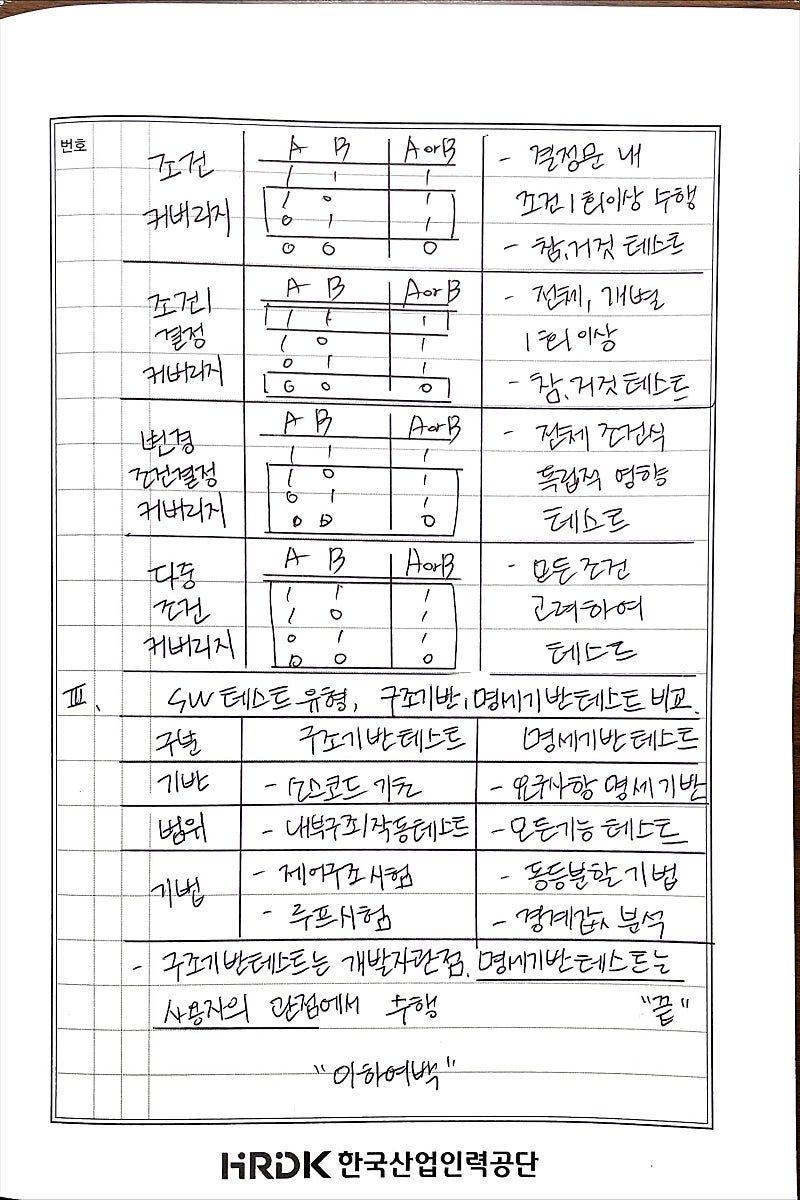 번호
조건
커버리지
A B AorB
1 1 1
1 0 1
0 1 1
0 0 0
- 결정문 내
조건 1회이상 수행
- 참, 거짓 테스트
조건/
결정
커버리지
A B AorB
1 1 1
1 0 1
0 1 1
0 0 0
- 전체, 개별
1회 이상
- 참, 거짓 테스트
변경
조건결정
커버리지
A B AorB
1 1 1
1 0 1
0 1 1
0 0 0
- 전체 조건식
독립적 영향
테스트
다중
조건
커버리지
A B AorB
1 1 1
1 0 1
0 1 1
0 0 0
- 모든 조건
고려하여
테스트
Ⅲ. SW 테스트 유형, 구조기반, 명세기반 테스트 비교.
구분 구조기반 테스트 명세기반 테스트
기반 - 소스코드 기반 - 요구사항 명세 기반
범위 - 내부구조/작동테스트 - 모든기능 테스트
기법
- 제어구조 시험 - 동등분할 기법
- 루프시험 - 경계값 분석
- 구조기반테스트는 개발자관점, 명세기반테스트는
사용자의 관점에서 수행 "끝"
"이하여백"
HRDK 한국산업인력공단